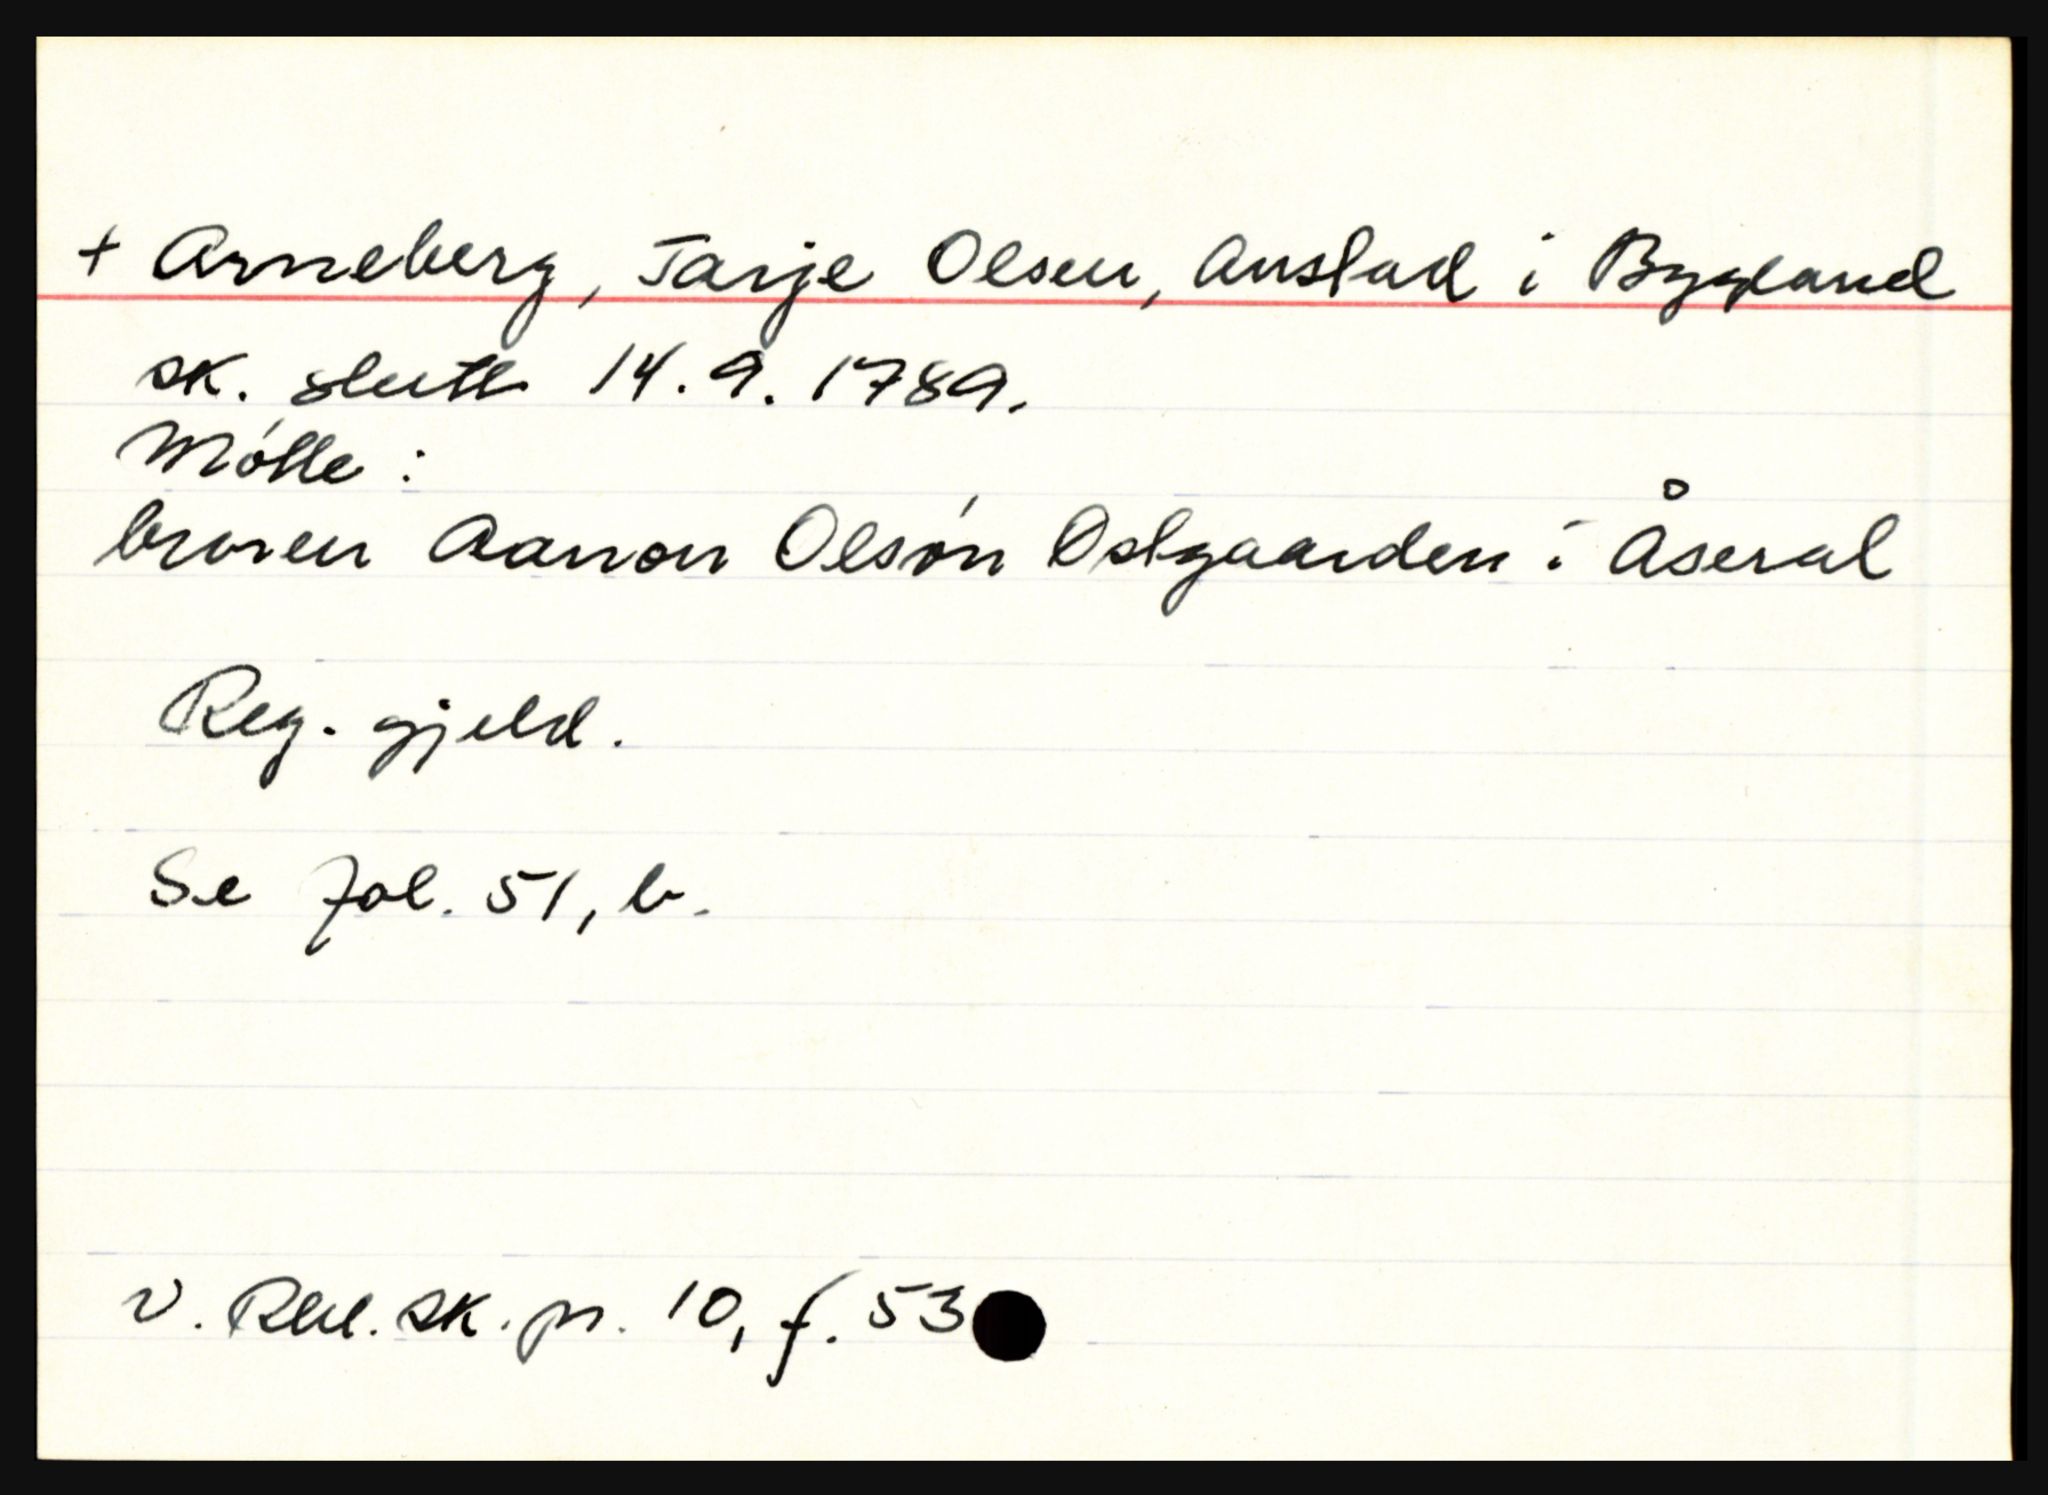 + Arneberg, Tarje Olsen, Austad i Bygland
sk. slutt 14.9.1789.
Møtte:
broren Aanon Olsøn Østgaarden i Åseral
Reg. gjeld.
Se fol. 51, b.
V. Rbl. sk. pr. 10, f. 53